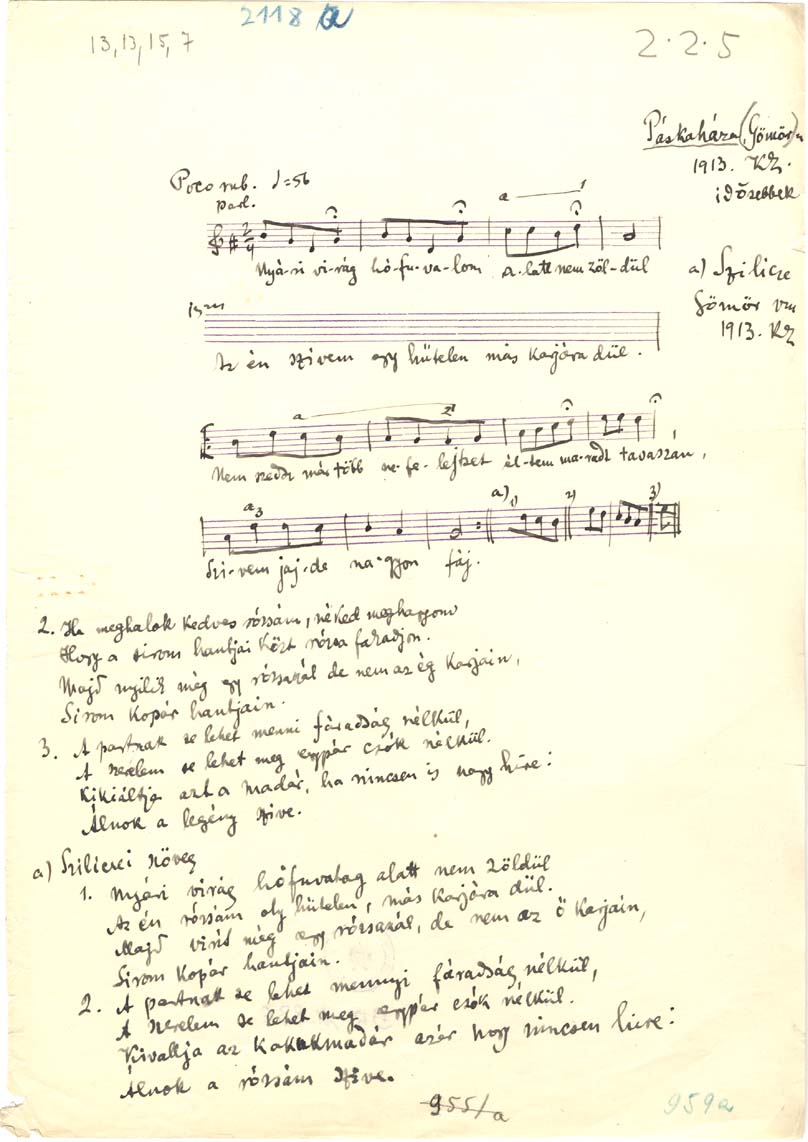 2118 a
13, 13, 15, 7
2·2·5
Páskaháza (Gömör)
1913. KZ.
idősebbek
Poco rub. ♩=56
parl.
a
2/4
Nyá-ri vi-rág hó-fu-va-lom a-latt nem zöl-dül
a) Szilicze
Gömör vm
1913. KZ
Az én szivem egy hütelen más karjára dül.
a 2)
Nem szedsz már több ne-fe-lejtset él-tem ma-radt tavaszán,
a 3 a) 1) 2) 3)
Szi-vem jaj-de na-gyon fáj.
2. Ha meghalok kedves rózsám, néked meghagyom
Hogy a sirom hantjai közt rózsa fakadjon.
Majd nyilik még egy rózsaszál de nem az ég karjain,
Sirom kopár hantjain.
3. A partnak se lehet menni fáradság nélkül,
A szerelem se lehet meg egypár csók nélkül.
Kikiáltja azt a madár, ha nincsen is nagy hire:
Álnok a legény szive.
a) Sziliczei szöveg
1. Nyári virág hófuvatag alatt nem zöldül
Az én rózsám oly hütelen, más karjára dül.
Majd virít még egy rózsaszál, de nem az ő karjain,
Sirom kopár hantjain.
2. A partnak se lehet mennyi fáradság nélkül,
A szerelem se lehet meg egypár csók nélkül.
Kivallja az kakukmadár azér hogy nincsen hire:
Álnok a rózsám szive.
955/a
959a